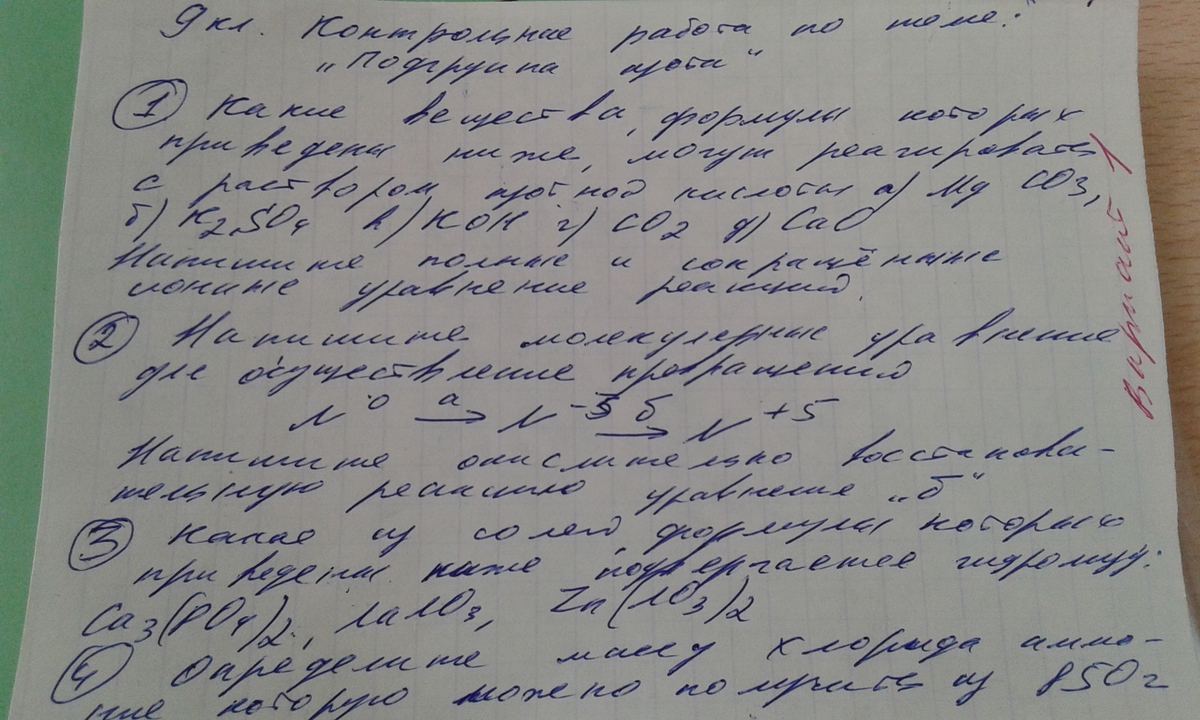 9 кл. Контрольная работа по теме:
„Подгруппа азота"
① Какие вещества, формулы которых
приведены ниже, могут реагировать
с раствором азотной кислоты а) MgCO3,
б) K2SO4 в) KOH г) CO2 д) CaO
Напишите полные и сокращённые
ионные уравнение реакций.
② Напишите молекулярные уравнение
для осуществление превращений
N⁰ а→ N⁻³ б→ N⁺⁵
Напишите окислительно восстанови-
тельную реакцию уравнение „б"
③ Какае из солей, формулы которых
приведены ниже подвергается гидролизу:
Ca3(PO4)2, NaNO3, Zn(NO3)2
④ Определите массу хлорида аммо-
ние которую можно получить из 850г
Вариант 1